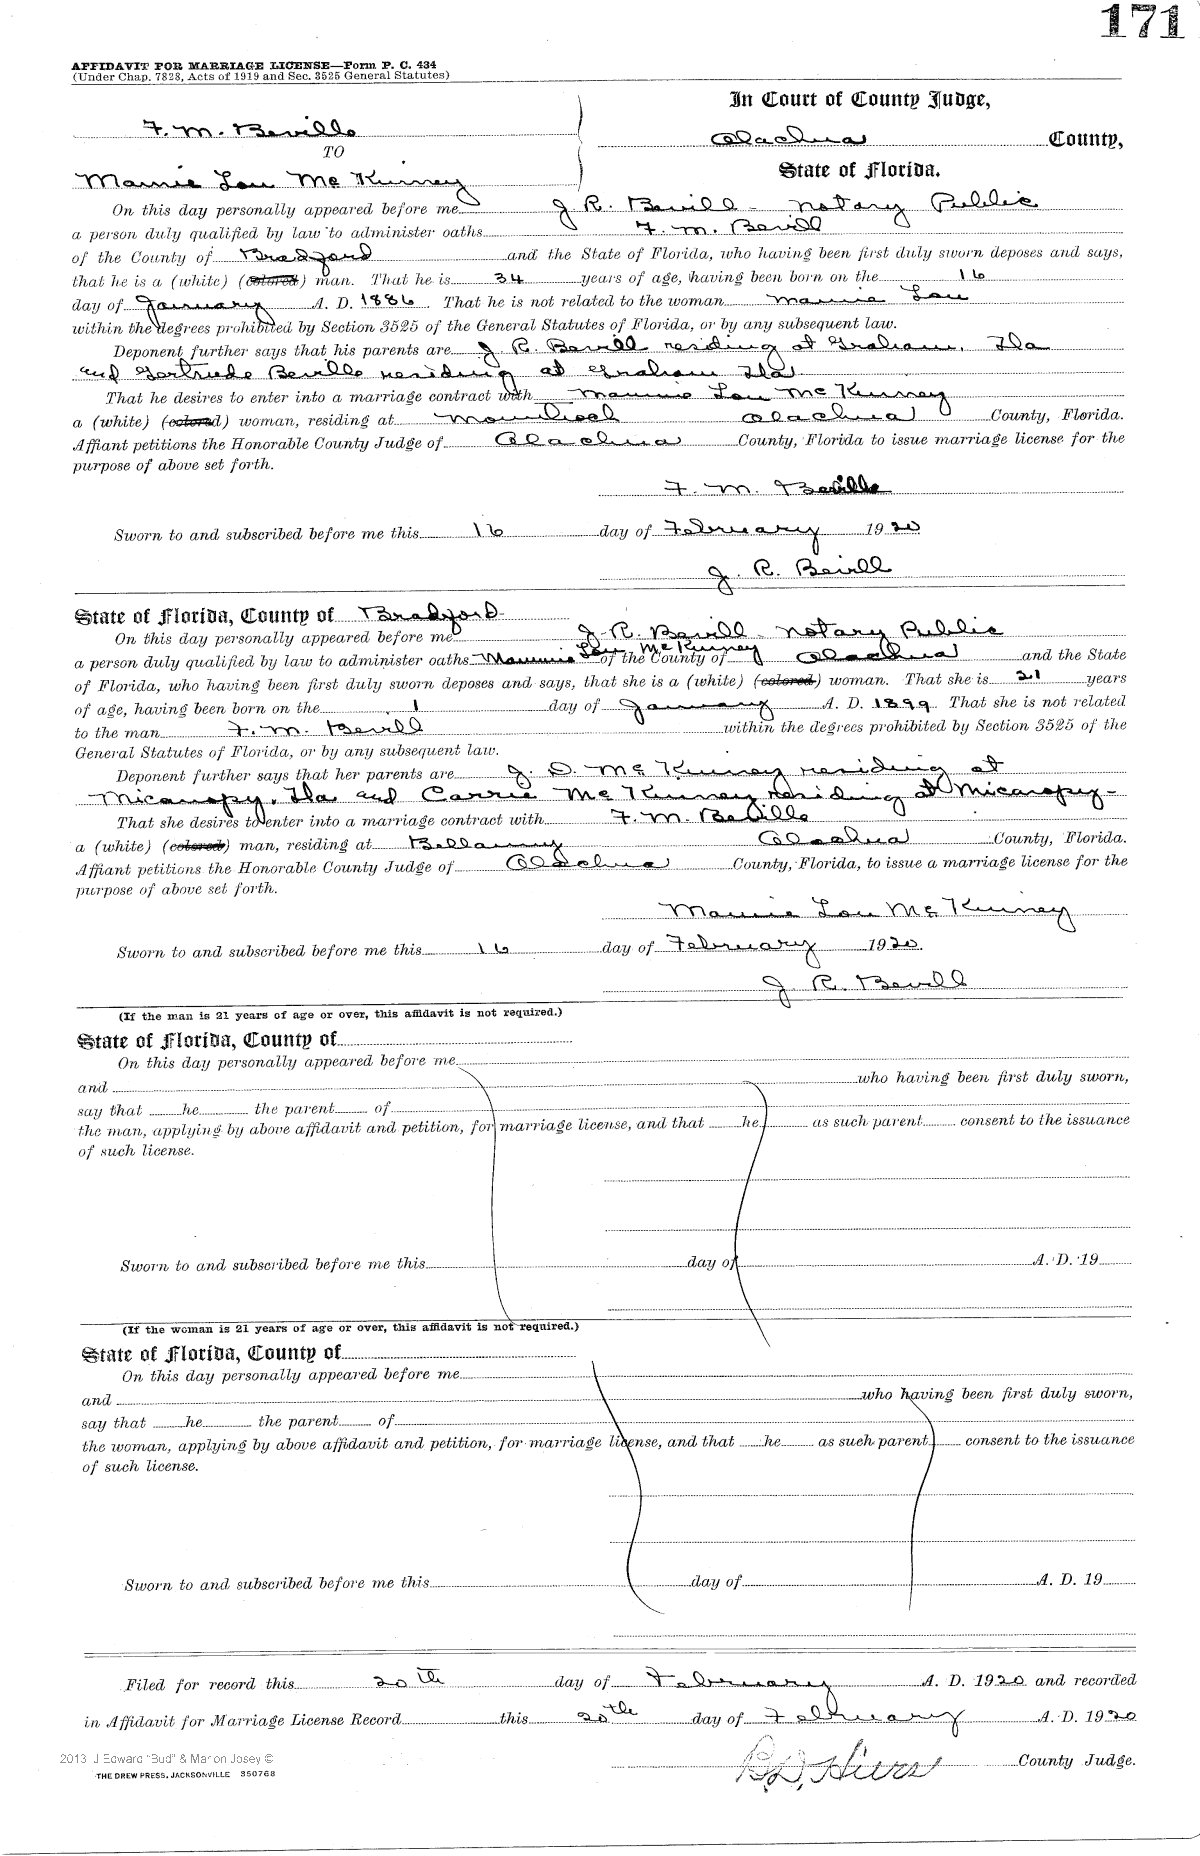 171
AFFIDAVIT FOR MARRIAGE LICENSE—Form P. C. 434
(Under Chap. 7828, Acts of 1919 and Sec. 3525 General Statutes)
In Court of County Judge,
F. M. Beville
Alachua County,
TO
State of Florida.
Mamie Lou McKinney
On this day personally appeared before me J. R. Bevill - Notary Public
a person duly qualified by law to administer oaths F. M. Bevill
of the County of Bradford and the State of Florida, who having been first duly sworn deposes and says,
that he is a (white) (colored) man. That he is 34 years of age, having been born on the 16
day of January A. D. 1886. That he is not related to the woman Mamie Lou
within the degrees prohibited by Section 3525 of the General Statutes of Florida, or by any subsequent law.
Deponent further says that his parents are J. R. Bevill residing at Graham, Fla
and Gertrude Beville residing at Graham Fla
That he desires to enter into a marriage contract with Mamie Lou McKinney
a (white) (colored) woman, residing at Alachua County, Florida.
Affiant petitions the Honorable County Judge of Alachua County, Florida to issue marriage license for the
purpose of above set forth.
F. M. Beville
Sworn to and subscribed before me this 16 day of February 1920
J. R. Bevill
State of Florida, County of Bradford
On this day personally appeared before me J. R. Bevill - Notary Public
a person duly qualified by law to administer oaths Mammie Lou McKinney of the County of Alachua and the State
of Florida, who having been first duly sworn deposes and says, that she is a (white) (colored) woman. That she is 21 years
of age, having been born on the 1 day of January A. D. 1899. That she is not related
to the man F. M. Bevill within the degrees prohibited by Section 3525 of the
General Statutes of Florida, or by any subsequent law.
Deponent further says that her parents are J. D. McKinney residing at
Micanopy, Fla and Carrie McKinney residing at Micanopy-
That she desires to enter into a marriage contract with F. M. Beville
a (white) (colored) man, residing at Bellamy Alachua County, Florida.
Affiant petitions the Honorable County Judge of Alachua County, Florida, to issue a marriage license for the
purpose of above set forth.
Mamie Lou McKinney
Sworn to and subscribed before me this 16 day of February 1920.
J. R. Bevill
(If the man is 21 years of age or over, this affidavit is not required.)
State of Florida, County of
On this day personally appeared before me
and who having been first duly sworn,
say that he the parent of
the man, applying by above affidavit and petition, for marriage license, and that he as such parent consent to the issuance
of such license.
Sworn to and subscribed before me this day of A. D. 19
(If the woman is 21 years of age or over, this affidavit is not required.)
State of Florida, County of
On this day personally appeared before me
and who having been first duly sworn,
say that he the parent of
the woman, applying by above affidavit and petition, for marriage license, and that he as such parent consent to the issuance
of such license.
Sworn to and subscribed before me this day of A. D. 19
Filed for record this 20th day of February A. D. 1920 and recorded
in Affidavit for Marriage License Record this 20th day of February A. D. 1920
2013 J Edward "Bud" & Marion Josey ©
THE DREW PRESS, JACKSONVILLE 350768
County Judge.